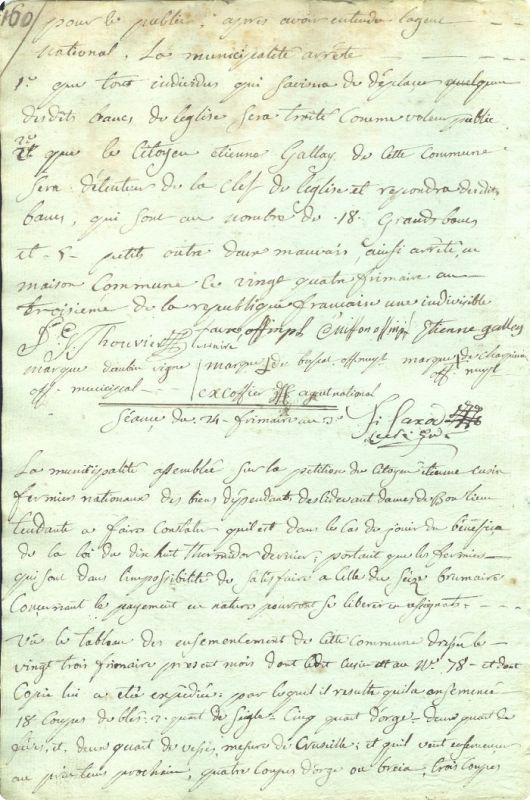 160/
pour le public: après avoir entendu lagent
national. La municipalité arrête
1.º que tout individus qui savisera de déplacer quelquun
desdits bancs de léglise sera traité comme voleur public
2.º que le citoyen étienne Gallay de cette commune
sera détenteur de la clef de léglise et répondra desdits
bancs, qui sont au nombre de 18 Grands bancs
et 5 petits outre deux mauvais, ainsi arrêté, en
maison commune ce vingt quatre frimaire an
troisieme de la république francaise une indivisible
Thouvier favre off mpl Cuisson off mpl Etienne gallay
maire
marque dantoine vigne marque de off muple marque de
off. municipal off muple
excoffier agent national
Séance du 24 frimaire an 3e
La municipalité assemblée sur la pétition du citoyen étienne cusin
fermier nationaux des biens dépendants des cidevant dames de Bon lieu
tendante a faire constater quil est dans le cas de jouir du bénéfice
de la loi du dix huit thermidor dernier; portant que les fermiers
qui sont dans limpossibilité de satisfaire a celle du seize brumaire
concernant le payement en nature pourront se liberer en assignats:
Vû le tableau des ensemencement de cette commune dressé le
vingt trois frimaire présent mois dont ledit cusin est au Nº 78 et dont
copie lui a étée expédiée: par lequel il resulte quil a ensemencé
18 coupes de bled: 2 quart de seigle: cinq quart d'orge deux quart de
fève, et deux quart de vesses mesure de Cruseille; et quil veut ensemencer
au printems prochain, quatre coupes d'orge ou trois coupes